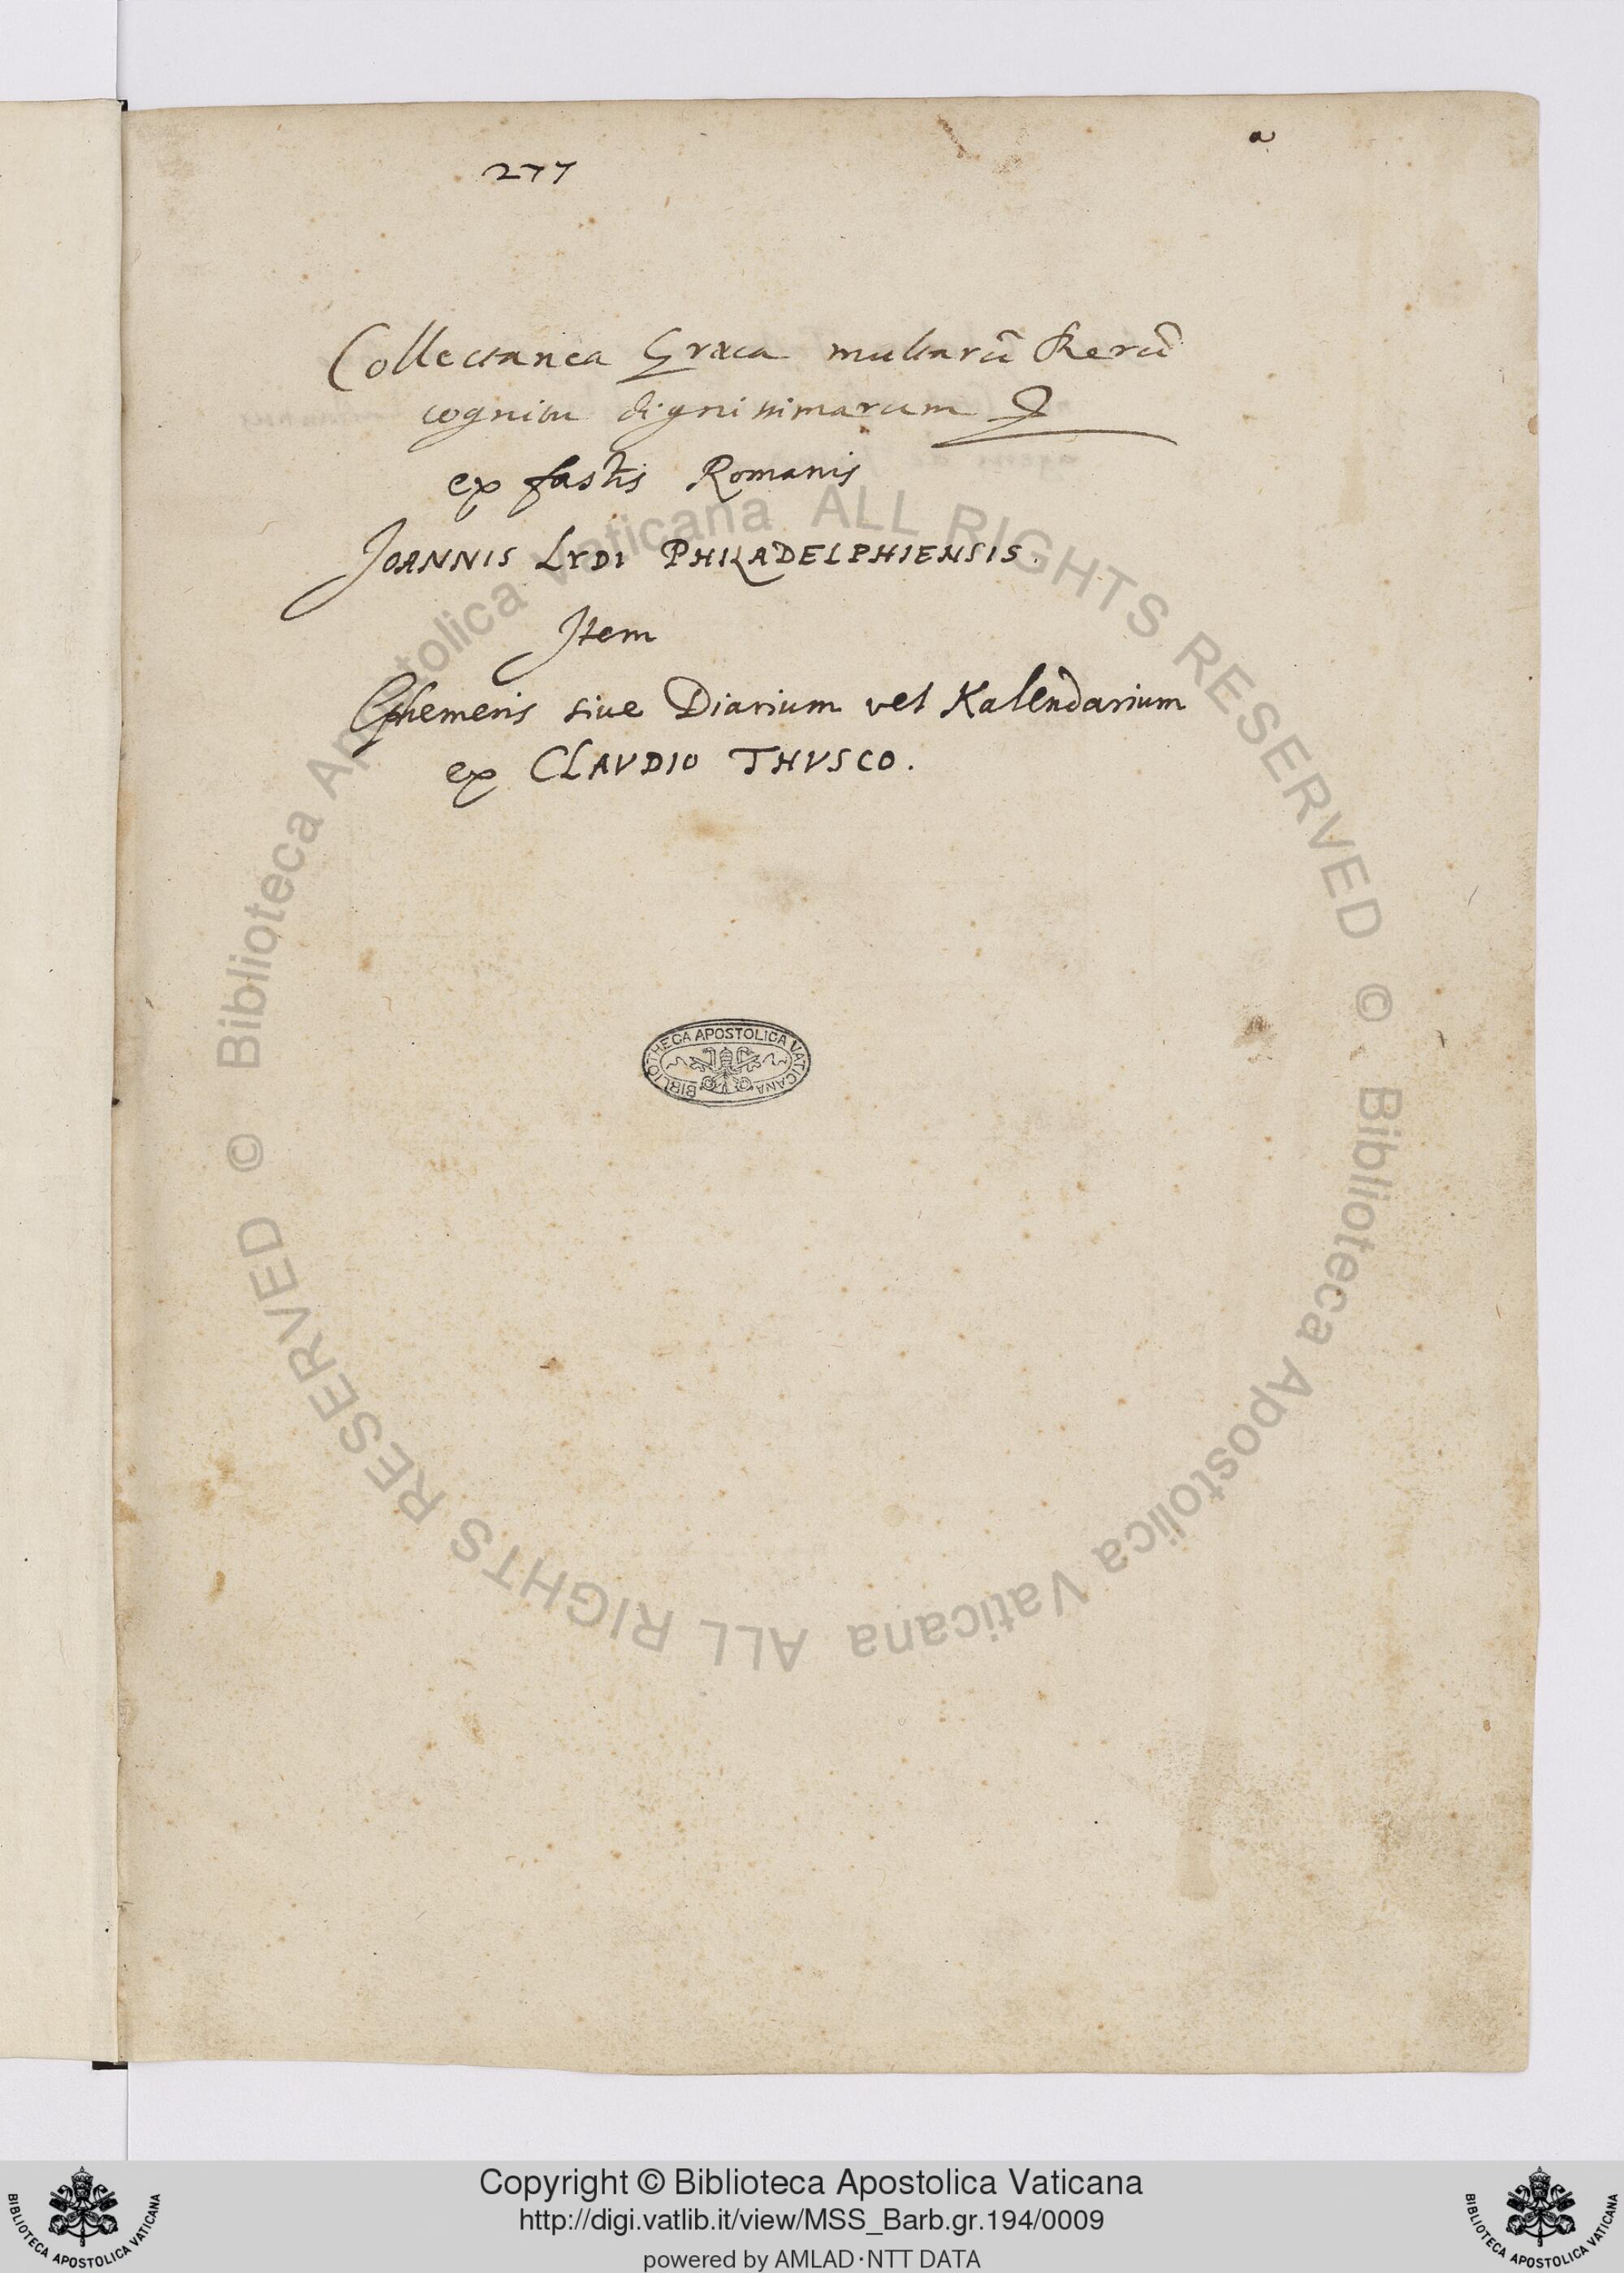 a
277
Collectanea Græca multarũ Rerũ
cognitu dignissimarum
ex fastis Romanis
JOANNIS LYDI PHILADELPHIENSIS.
Item
Ephemeris sive Diarium vel Kalendarium
ex CLAVDIO THVSCO.
BIBLIOTHECA APOSTOLICA VATICANA
© Biblioteca Apostolica Vaticana ALL RIGHTS RESERVED
© Biblioteca Apostolica Vaticana ALL RIGHTS RESERVED
Copyright © Biblioteca Apostolica Vaticana
http://digi.vatlib.it/view/MSS_Barb.gr.194/0009
powered by AMLAD·NTT DATA
BIBLIOTECA APOSTOLICA VATICANA
BIBLIOTECA APOSTOLICA VATICANA